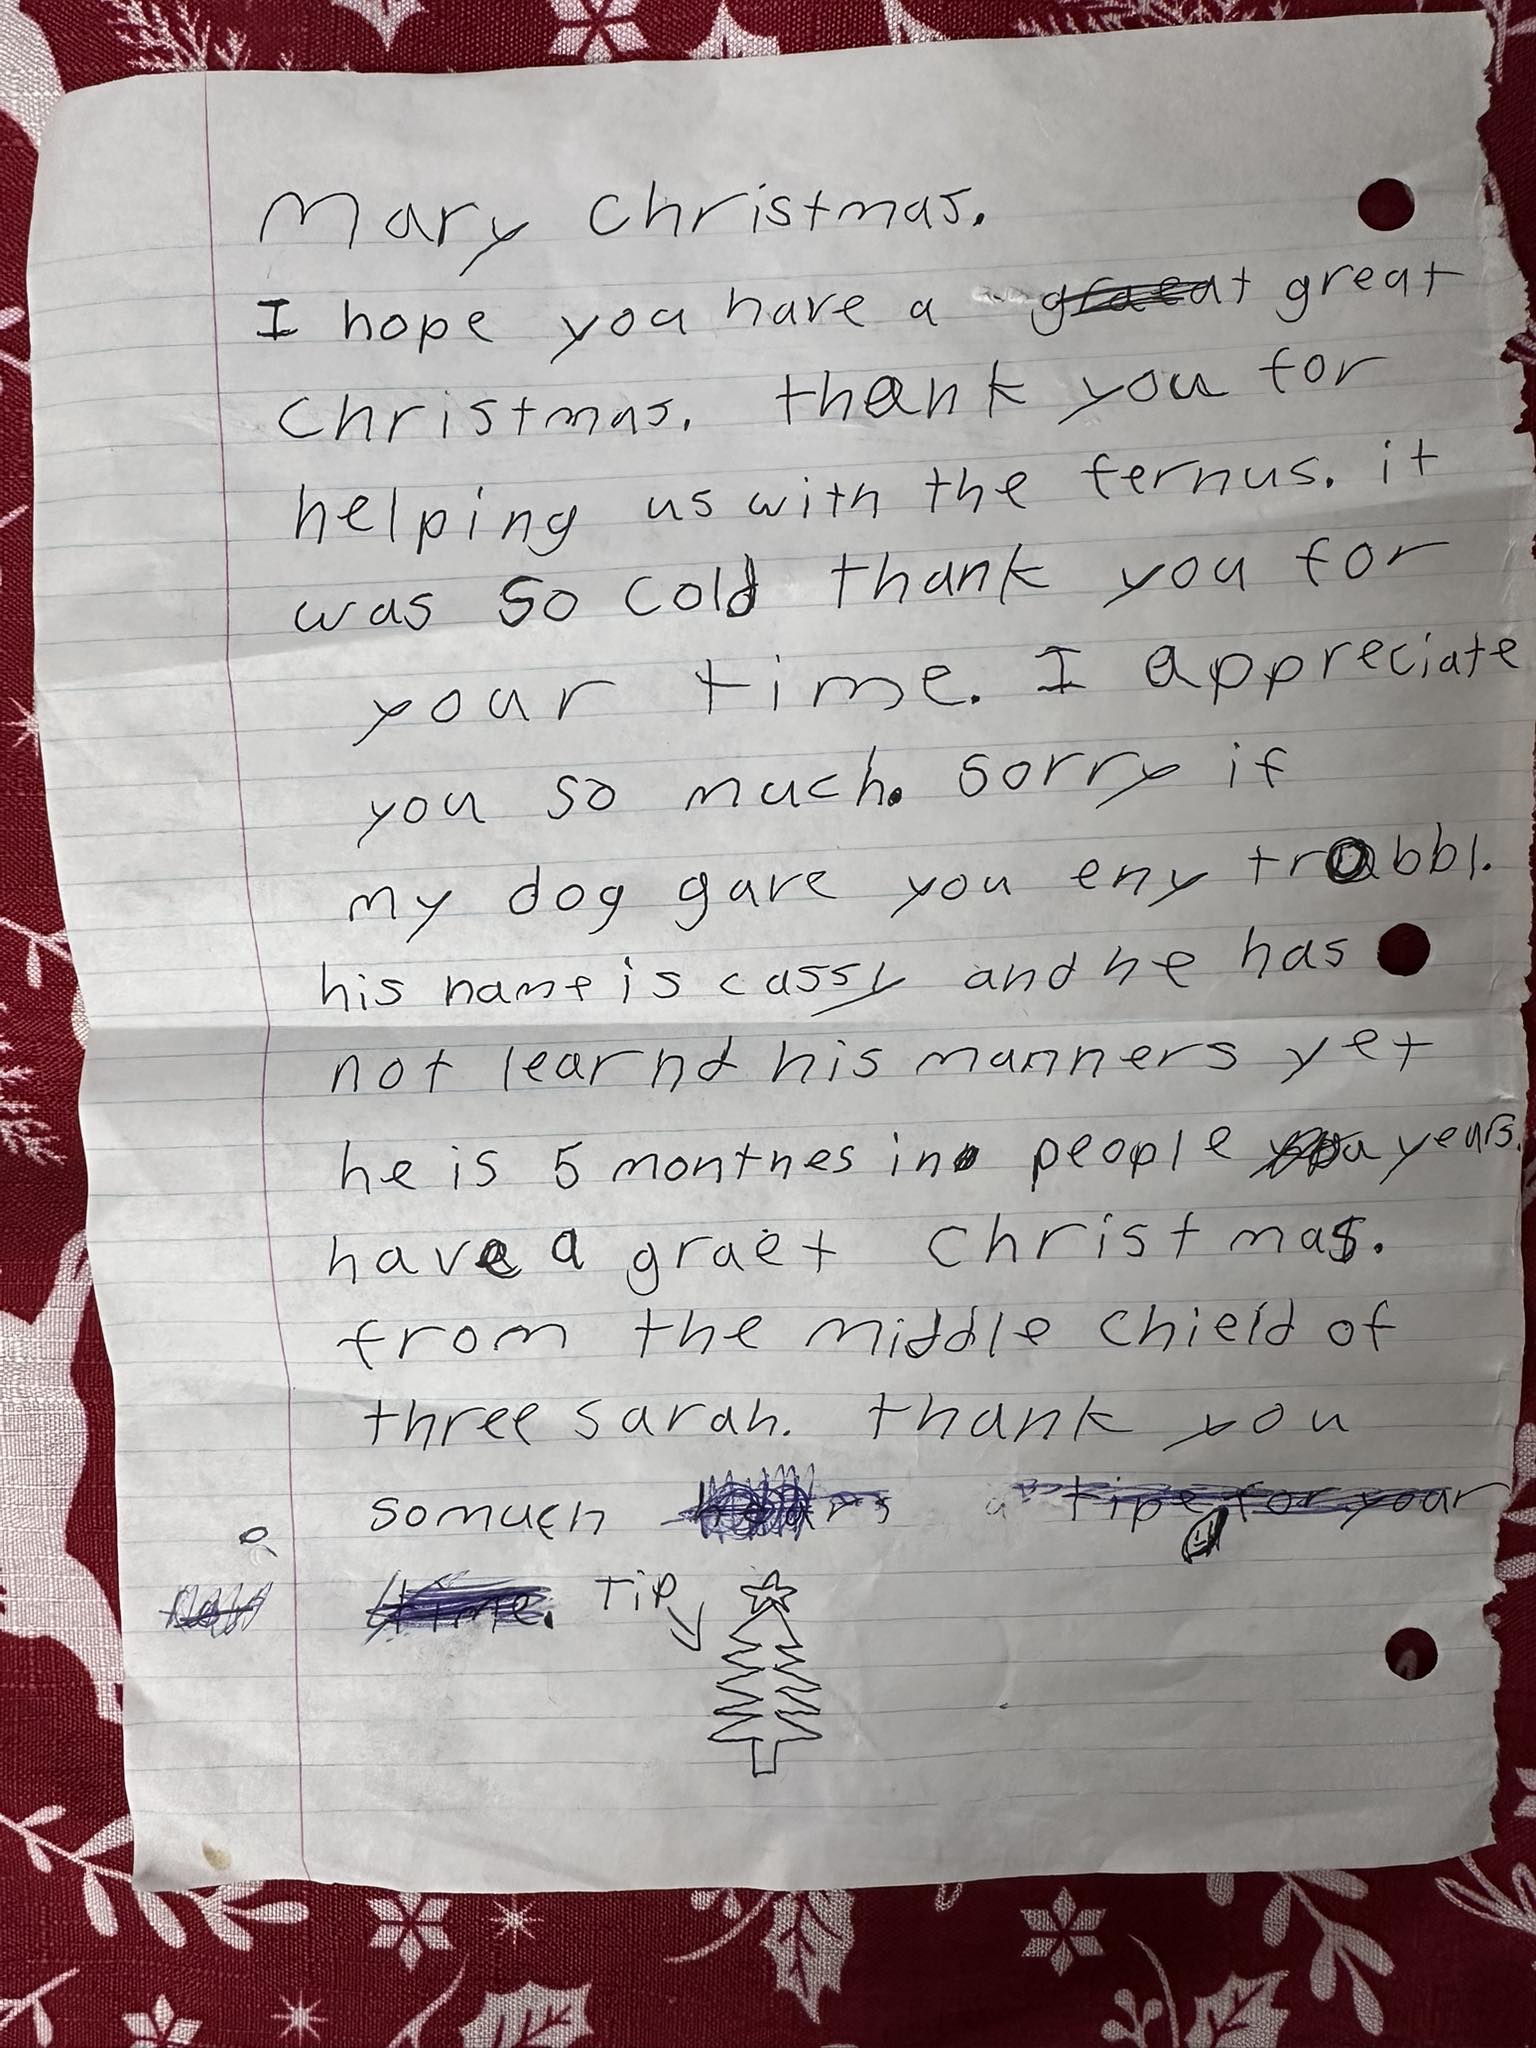 Mary christmas.
I hope you have a graeat great
christmas. thank you for
helping us with the fernus. it
was so cold thank you for
your time. I appreciate
you so much. sorry if
my dog gave you eny trabbl.
his name is cassy and he has
not learnd his manners yet
he is 5 monthes in people you years.
have a graet christmas.
from the middle chield of
three sarah. thank you
somuch hears a tipe for your
time. Tip